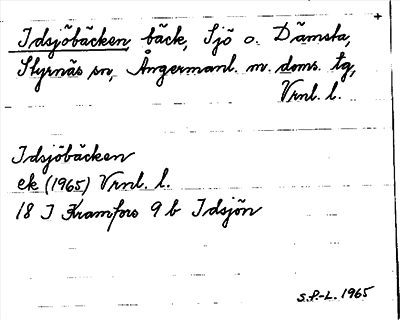 Idsjöbäcken, bäck, Sjö o. Dämsta,
Styrnäs sn, Ångermanl. m. doms. tg,
Vrnl. l.
Idsjöbäcken
ek (1965) Vrnl. l.
18 I Kramfors 9 b Idsjön
S.P.-L. 1965